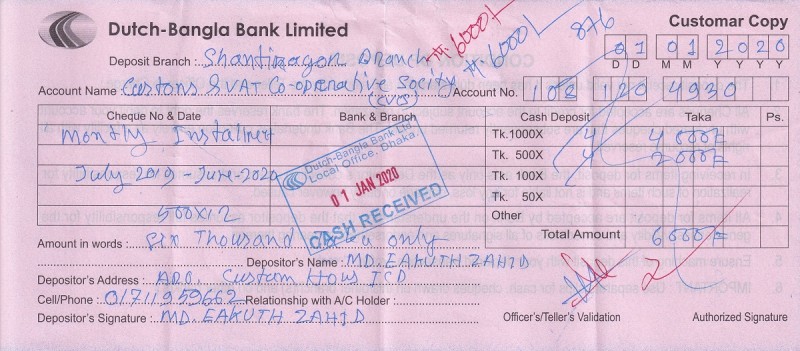 Dutch-Bangla Bank Limited
Customar Copy
876
Tk. 6000/
Tk 6000/
Deposit Branch : Shantinagon Branch
01 01 2020
D D M M Y Y Y Y
Account Name : Customs & VAT Co-operative Socity (CVCS) Account No. 108 120 4930
Cheque No & Date Bank & Branch Cash Deposit Taka Ps.
Montly Installment Tk.1000X 4 4000/
Tk. 500X 4 2000/
July 2019 - June-2020 Tk. 100X
Tk. 50X
500X12 Other
Dutch-Bangla Bank Ltd.
Local Office, Dhaka.
01 JAN 2020
CASH RECEIVED
Total Amount 6000/
Amount in words : Six Thousand only
Depositor's Name : MD. EAKUTH ZAHID
Depositor's Address : ARO, Custom Hous ICD
Cell/Phone : 01711959662 Relationship with A/C Holder :
Depositor's Signature : MD. EAKUTH ZAHID
Officer's/Teller's Validation Authorized Signature